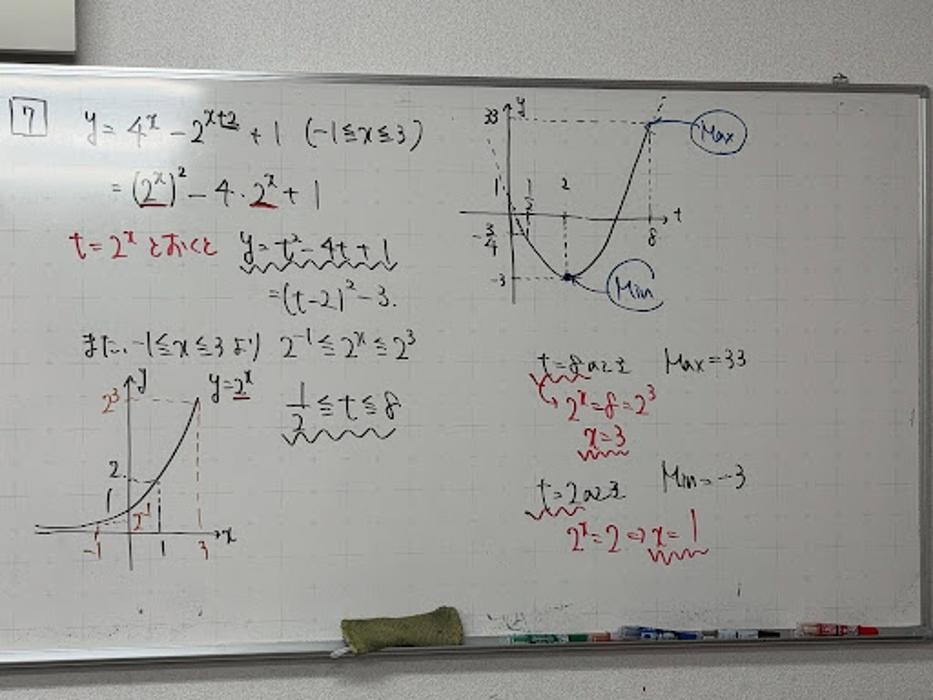 7
y = 4^x - 2^{x+2} + 1 (-1≦x≦3)
= (2^x)^2 - 4・2^x + 1
t = 2^x とおくと y = t^2 - 4t + 1
= (t-2)^2 - 3.
また、-1≦x≦3より 2^{-1} ≦ 2^x ≦ 2^3
1/2 ≦ t ≦ 8
y
y=2^x
2^3
2
1
2^{-1}
-1 1 3 x
y
33
Max
1 1/2 2
t
-3/4
8
-3
Min
t=8のとき Max=33
2^x=8=2^3
x=3
t=2のとき Min=-3
2^x=2⇒x=1